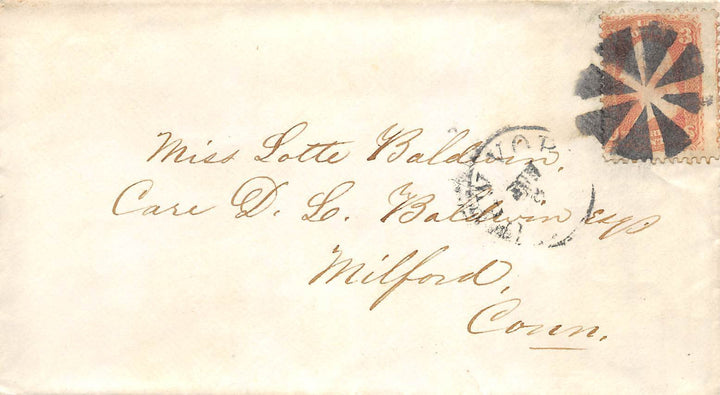 Miss Lotte Baldwin,
Care D. L. Baldwin Esq
Milford,
Conn.